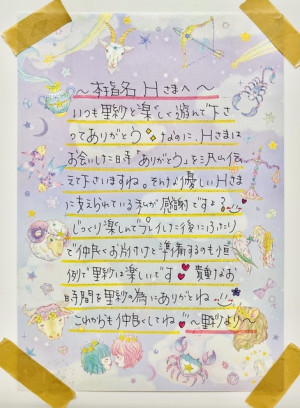 ～本指名 Hさまへ～
いつも野紗と楽しく遊んで下さ
ってありがとう✨なのに、Hさまは
お会いした日寺「ありがとう」を沢山伝
えて下さいますね。そんな優しいHさま
に支えられている私が感謝ですよる
じっくり楽しんでプレイした後にふたり
で仲良くお片付けと準備するのも恒
例で野紗は楽しいです♥ 貴重なお
時間を野紗の為にありがとね
これからも仲良くしてね♥～野紗より～